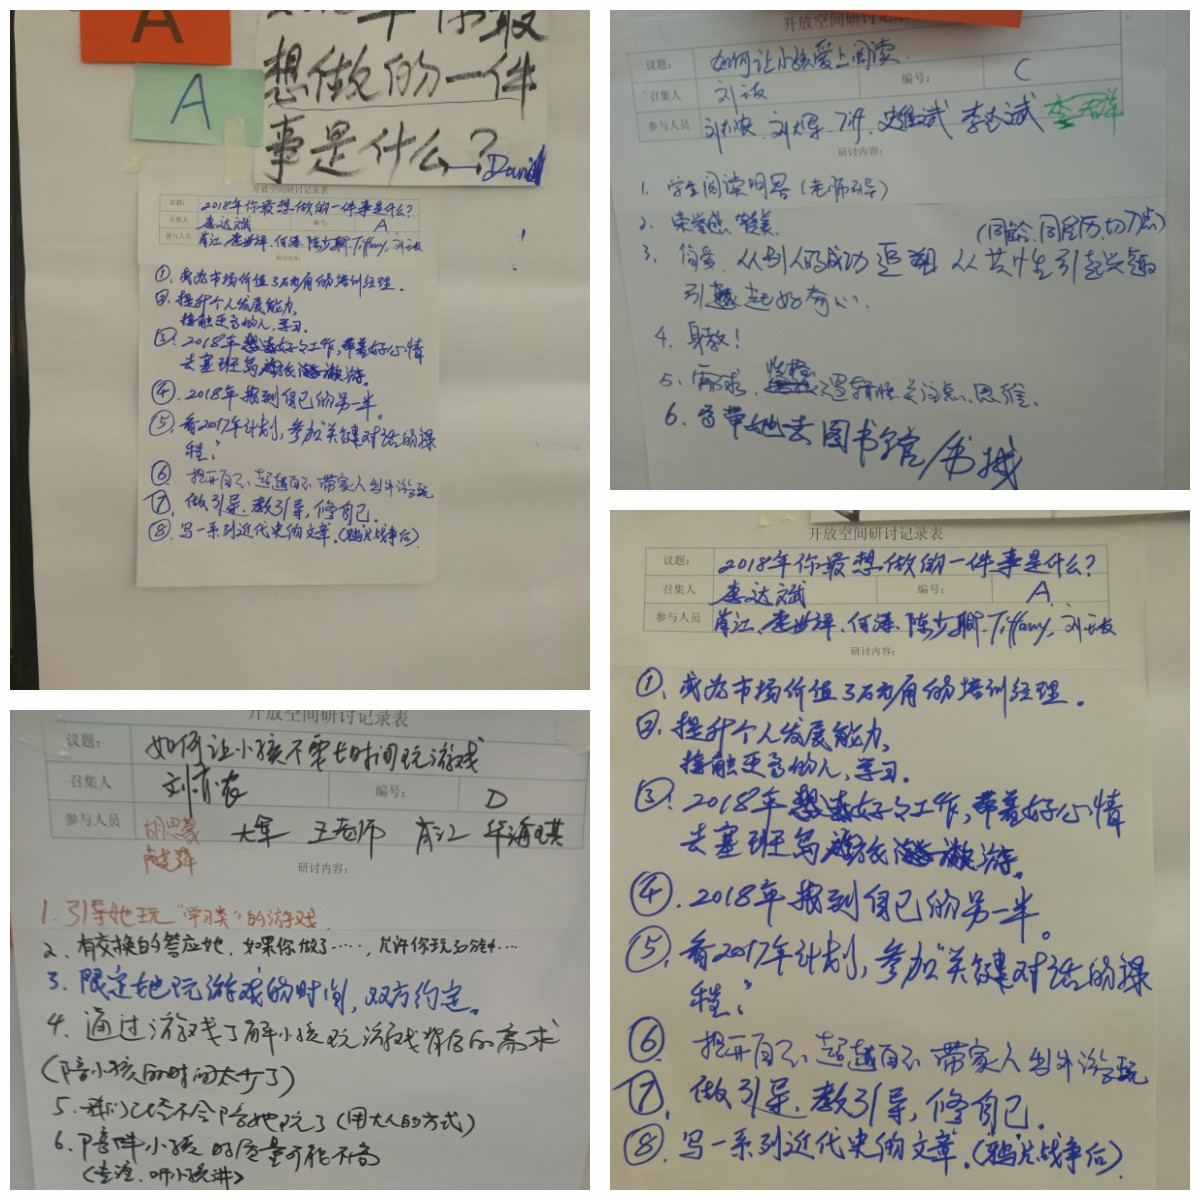 A
A
想做的一件
事是什么?
David
开放空间研讨记录表
议题: 2018年你最想做的一件事是什么?
召集人 李达斌 编号: A
参与人员 肖江、李世祥、何涛、陈少鹏、Tiffany、刘云波
研讨内容:
①、成为市场价值 的培训经理。
②、提升个人发展能力。
接触更高的人,学习。
③、2018年 好工作,带着好心情
去塞班岛 游。
④、2018年找到自己的另一半。
⑤、看2017年计划,参加"关键对话的课
程?"
⑥ 提升自己、超越自己 带家人出外游玩
⑦、做引导、教引导,修自己。
⑧、写一系列近代史的文章。(鸦片战争后)
开放空间研讨记录表
议题: 如何让小孩爱上阅读
召集人 刘云波 编号: C
参与人员 刘方农、刘大军、 李达斌 李世祥
研讨内容:
1. 学生阅读内容(老师引导)
2. 荣誉感
(同龄、同经历、切入点)
3. 偏爱、从别人的成功 从 中生引起兴趣
引起好奇心、
4. 身教!
5、需求、 逻辑性 关注点、思维、
6. 多带她去图书馆/书城
开放空间研讨记录表
议题: 如何让小孩不要长时间玩游戏
召集人 刘方农 编号: D
参与人员 胡思蒙 大军 王老师 肖江 华海琪
研讨内容:
1. 引导她玩"学习类"的游戏.
2、有交换的答应她,如果你做了……,允许你玩30分钟…
3. 限定她玩游戏的时间,双方约定。
4. 通过游戏了解小孩玩游戏背后的需求
(陪小孩的时间太少了)
5. 我们已经不会陪她玩了(用大人的方式)
6. 陪伴小孩的质量可能不高
(专注、听小孩讲)
开放空间研讨记录表
议题: 2018年你最想做的一件事是什么?
召集人 李达斌 编号: A
参与人员 肖江、李世祥、何涛、陈少鹏、Tiffany、刘云波
研讨内容:
①、成为市场价值 的培训经理。
②、提升个人发展能力。
接触更高的人,学习。
③、2018年 好工作,带着好心情
去塞班岛 游。
④、2018年找到自己的另一半。
⑤、看2017年计划,参加"关键对话的课
程?"
⑥ 提升自己、超越自己 带家人出外游玩
⑦、做引导、教引导,修自己。
⑧、写一系列近代史的文章。(鸦片战争后)